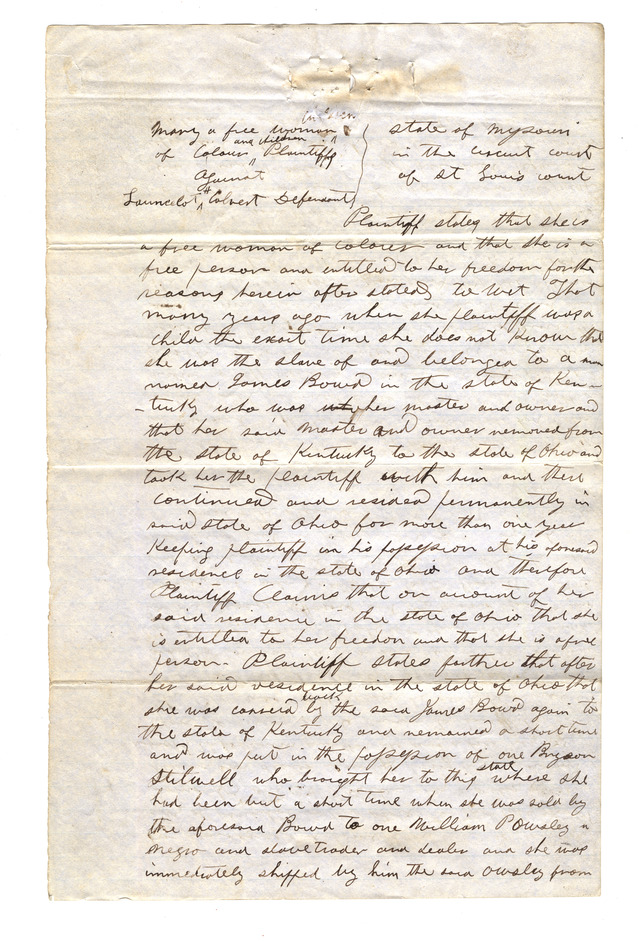 Mary a free woman } State of Myssouri
of Colour and children Plaintiffs in the circuit court
Against of St Louis count
Launcelot H Calvert Defendant
Plaintiff states that she is
a free woman of colour and that she is a
free person and intitled to her freedom for the
reasons herein after stated to wit That
many years ago when she plaintiff was a
child the exact time she does not know that
she was the slave of and belonged to a man
named James Bowd in the state of Ken-
-tucky who was her master and owner and
that her said master and owner removed from
the state of Kentucky to the state of Ohio and
took her the plaintiff with him and there
continued and resided permanently in
said state of Ohio for more than one year
Keeping plaintiff in his possession at his aforesaid
residence in the state of Ohio and therefore
Plaintiff Claims that on account of her
said residence in the state of Ohio that she
is entitled to her freedom and that she is a free
person - Plaintiff states further that after
her said residence in the state of Ohio that
she was carried back by the said James Bowd again to
the state of Kentucky and remained a short time
and was put in the possession of one Bryson
Stilwell who braight her to this state where she
had been but a short time when she was sold by
the aforesaid Bowd to one William P Owsley a
negro and slave trader and dealer and she was
immediately shipped by him the said Owsley from